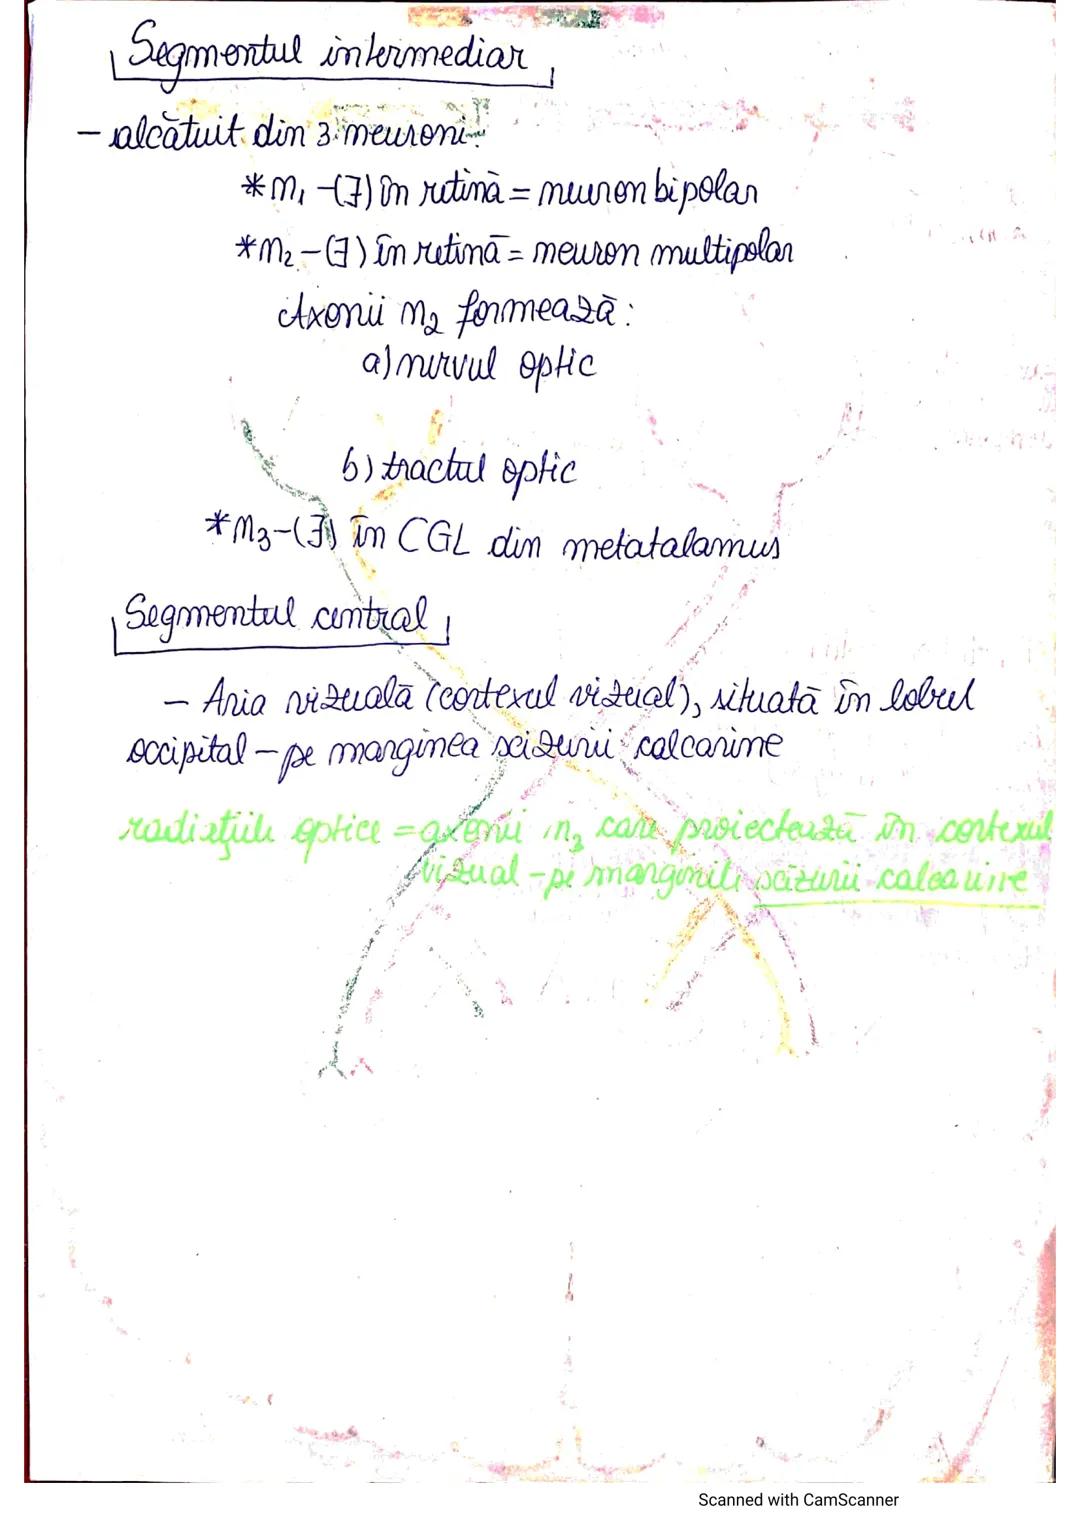 Segmentul intermediar
- alcătuit din 3 neuroni:
*n₁ -(∃) în retină = neuron bipolar
*n₂ -(∃) în retină = neuron multipolar
Axonii n₂ formează:
a) nervul optic
b) tractul optic
*n₃-(∃) în CGL din metatalamus
Segmentul central
- Aria vizuală (cortexul vizual), situată în lobul
occipital - pe marginea scizurii calcarine
radiațiile optice = axonii n₃ care proiectează în cortexul
vizual - pe marginile scizurii calcarine
Scanned with CamScanner